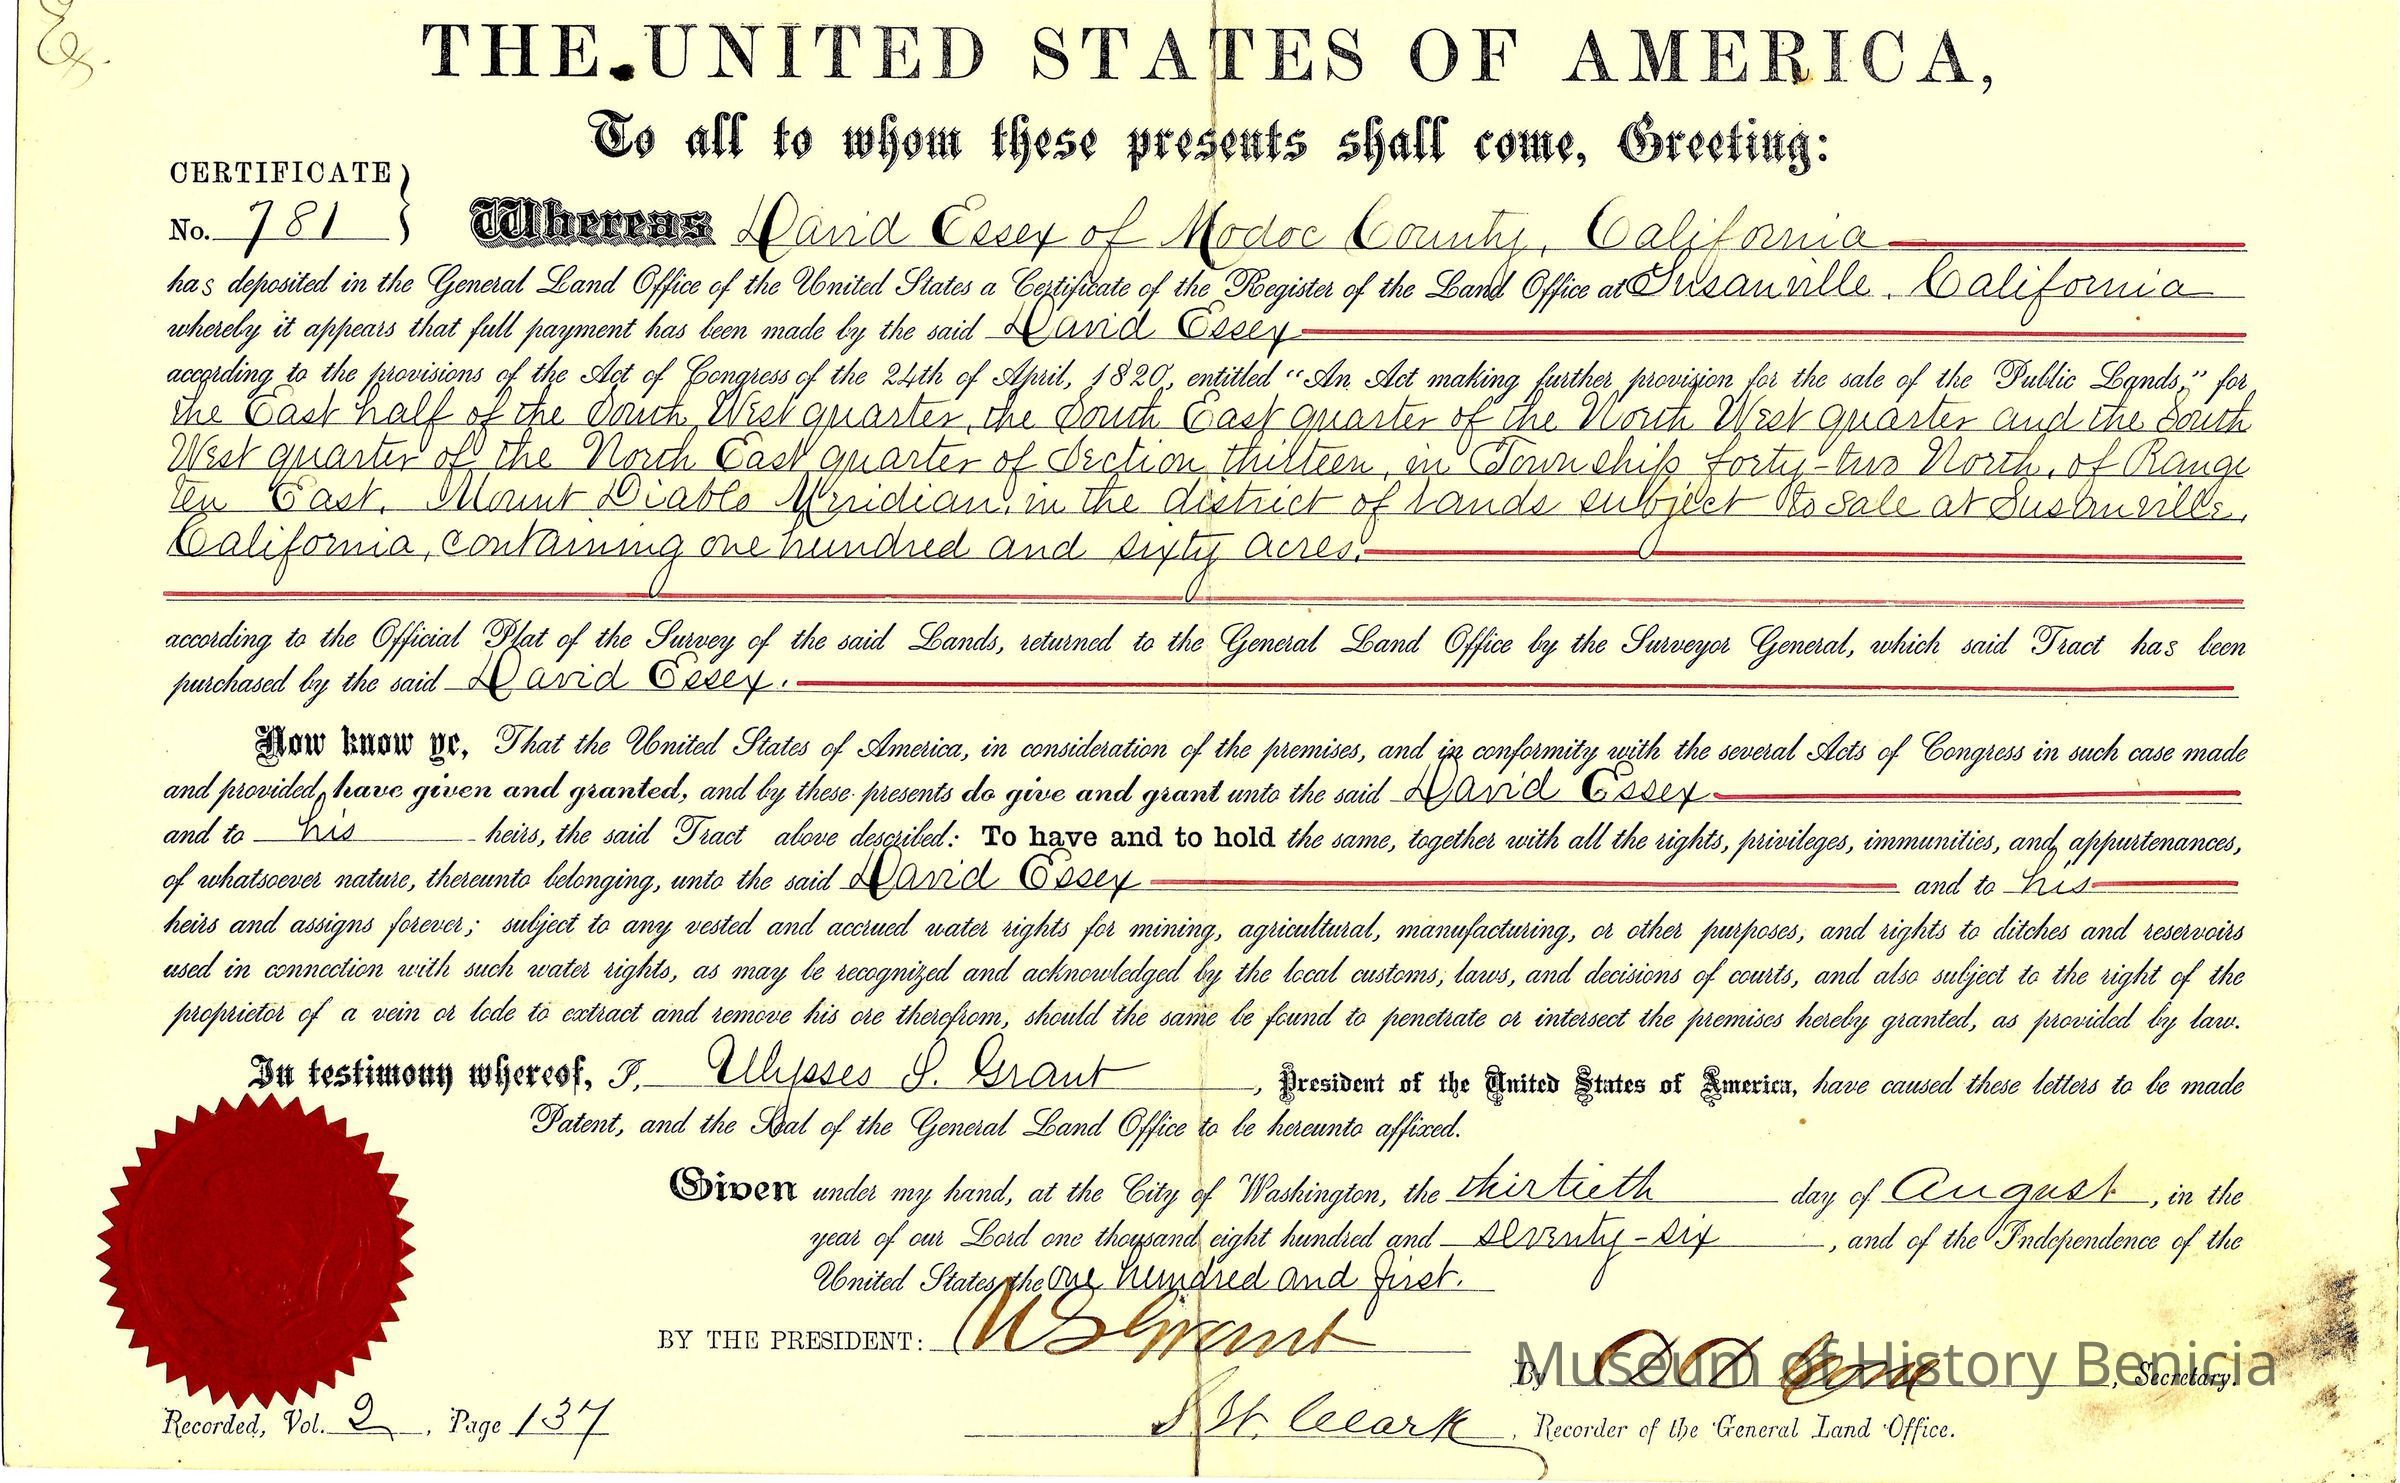 THE UNITED STATES OF AMERICA,
To all to whom these presents shall come, Greeting:
CERTIFICATE
No. 781
Whereas David Essex of Modoc County, California
has deposited in the General Land Office of the United States a Certificate of the Register of the Land Office at Susanville, California
whereby it appears that full payment has been made by the said David Essex
according to the provisions of the Act of Congress of the 24th of April, 1820, entitled "An Act making further provision for the sale of the Public Lands," for
the East half of the South West quarter, the South East quarter of the North West quarter and the South
West quarter of the North East quarter of Section thirteen, in Township forty-two North, of Range
ten East, Mount Diablo Meridian, in the district of lands subject to sale at Susanville,
California, containing one hundred and sixty acres.
according to the Official Plat of the Survey of the said Lands, returned to the General Land Office by the Surveyor General, which said Tract has been
purchased by the said David Essex.
Now know ye, That the United States of America, in consideration of the premises, and in conformity with the several Acts of Congress in such case made
and provided, have given and granted, and by these presents do give and grant unto the said David Essex
and to his heirs, the said Tract above described: To have and to hold the same, together with all the rights, privileges, immunities, and appurtenances,
of whatsoever nature, thereunto belonging, unto the said David Essex and to his
heirs and assigns forever; subject to any vested and accrued water rights for mining, agricultural, manufacturing, or other purposes, and rights to ditches and reservoirs
used in connection with such water rights, as may be recognized and acknowledged by the local customs, laws, and decisions of courts, and also subject to the right of the
proprietor of a vein or lode to extract and remove his ore therefrom, should the same be found to penetrate or intersect the premises hereby granted, as provided by law.
In testimony whereof, I, Ulysses S. Grant, President of the United States of America, have caused these letters to be made
Patent, and the Seal of the General Land Office to be hereunto affixed.
Given under my hand, at the City of Washington, the thirtieth day of August, in the
year of our Lord one thousand eight hundred and seventy-six, and of the Independence of the
United States the one hundred and first.
BY THE PRESIDENT: U S Grant
By Secretary.
Museum of History Benicia
Recorded, Vol. 2, Page 137
S. W. Clark, Recorder of the General Land Office.